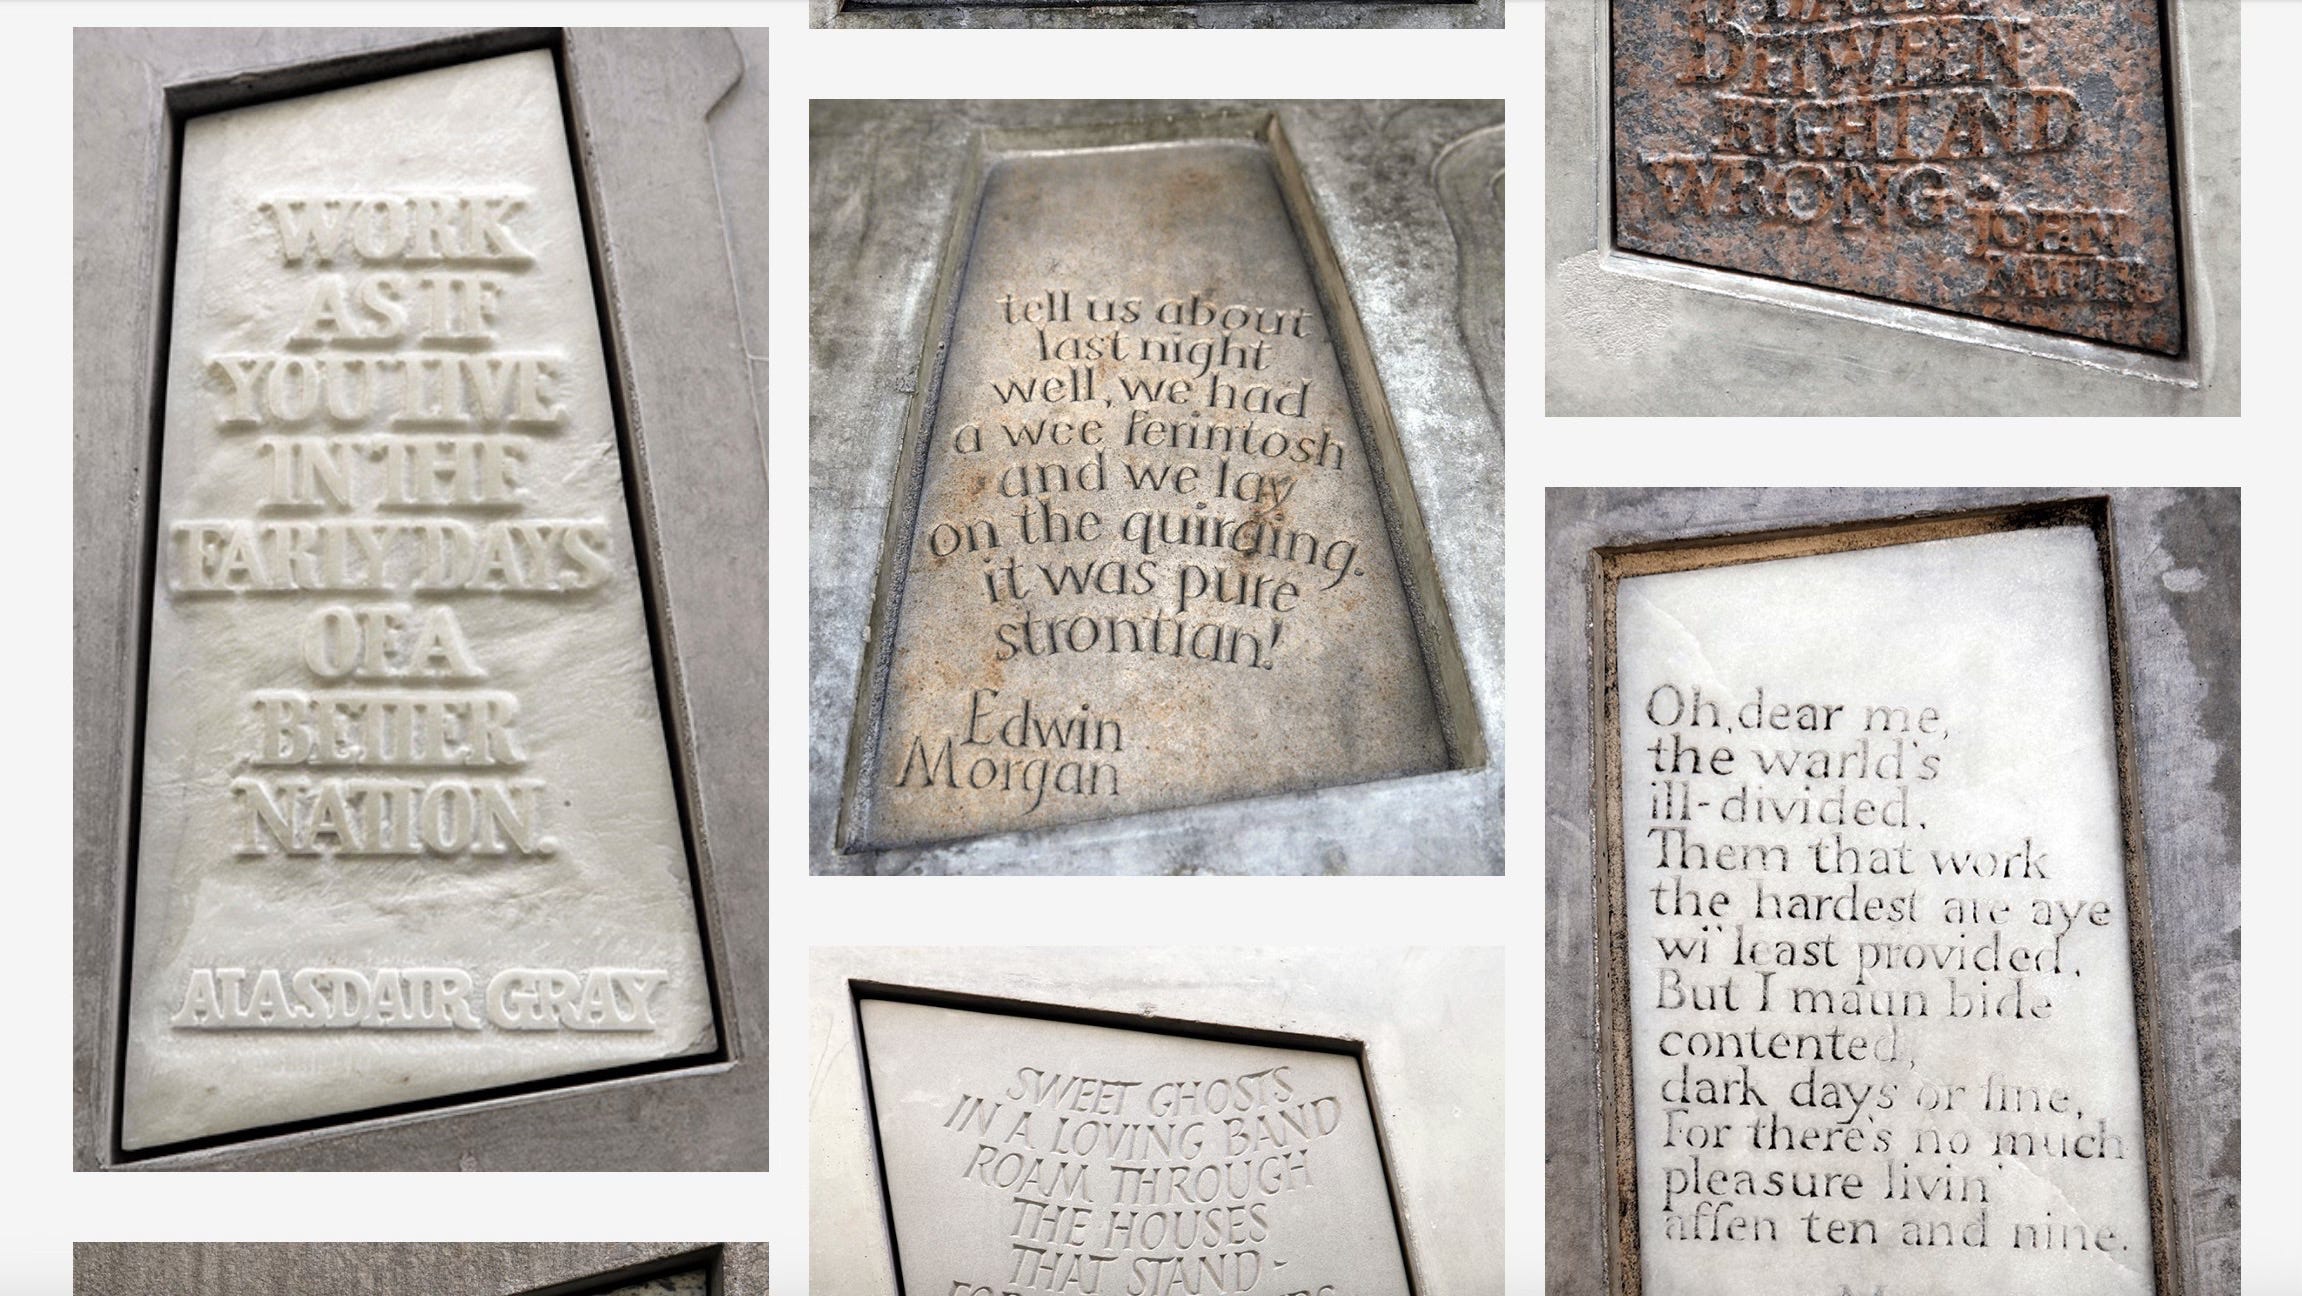 WORK
AS IF
YOU LIVE
IN THE
EARLY DAYS
OF A
BETTER
NATION.
ALASDAIR GRAY
tell us about
last night
well, we had
a wee ferintosh
and we lay
on the quiraing.
it was pure
strontian!
Edwin
Morgan
SWEET GHOSTS
IN A LOVING BAND
ROAM THROUGH
THE HOUSES
THAT STAND-
BETWEEN
RIGHT AND
WRONG.
JOHN
Oh, dear me,
the warld's
ill-divided.
Them that work
the hardest are aye
wi' least provided.
But I maun bide
contented,
dark days or fine,
For there's no much
pleasure livin'
affen ten and nine.